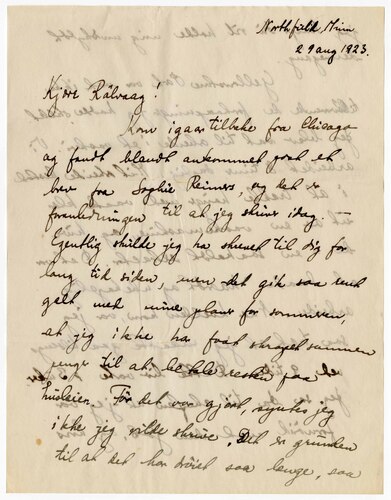 Northfield, Minn
29 aug 1923.
Kjære Rölvaag!
Kom igaar tilbake fra Chicago
og fandt blandt ankommet post et
brev fra Sophie Reimers, og det er
foranledningen til at jeg skriver idag. —
Egentlig skulde jeg ha skrevet til dig for
lang tid siden, men det gik saa rent
galt med mine planer for sommeren,
at jeg ikke har faat skrapet sammen
penge til at betale resten paa
husleien. Før det var gjort, syntes jeg
ikke jeg vilde skrive. Det er grunden
til at det har drøiet saa længe, saa